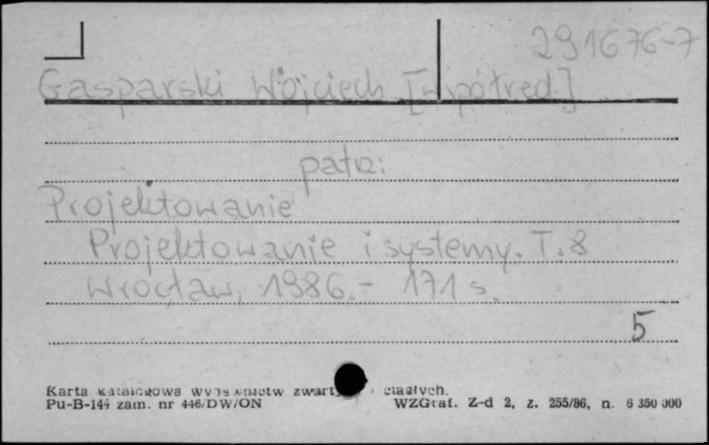 291676-7
Gasparski Wojciech [współred.]
patrz:
Projektowanie
Projektowanie i systemy. T. 8
Wrocław, 1986.- 171 s.
5
Karta katalogowa wydawnictw zwartych i ciągłych.
Pu-B-144 zam. nr 446/DW/ON WZGraf. Z-d 2, z. 255/86, n. 6 350 000